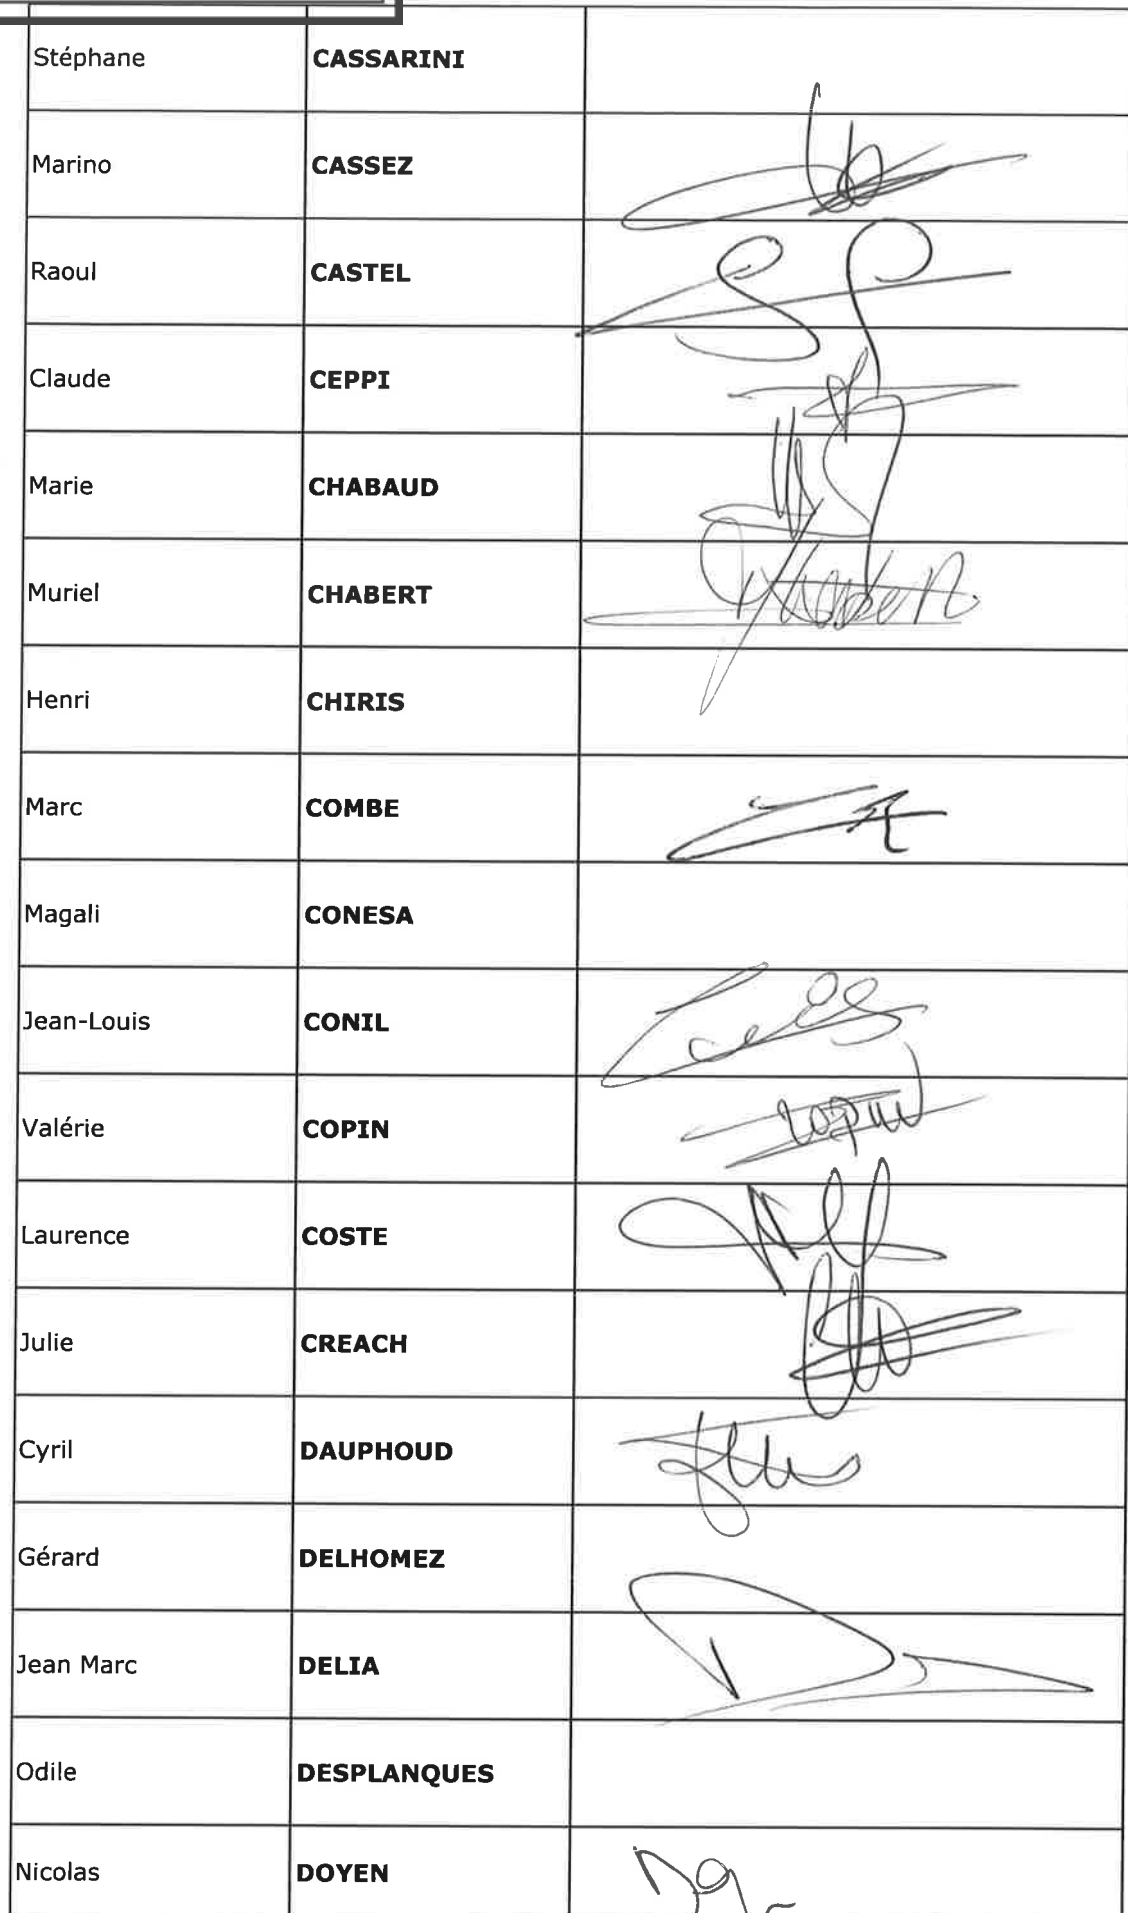 Stéphane CASSARINI
Marino CASSEZ
Raoul CASTEL
Claude CEPPI
Marie CHABAUD
Muriel CHABERT
Henri CHIRIS
Marc COMBE
Magali CONESA
Jean-Louis CONIL
Valérie COPIN copin
Laurence COSTE
Julie CREACH
Cyril DAUPHOUD
Gérard DELHOMEZ
Jean Marc DELIA
Odile DESPLANQUES
Nicolas DOYEN